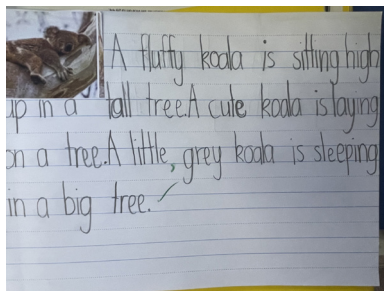 A fluffy koala is sitting high
up in a tall tree. A cute koala is laying
on a tree. A little, grey koala is sleeping
in a big tree.